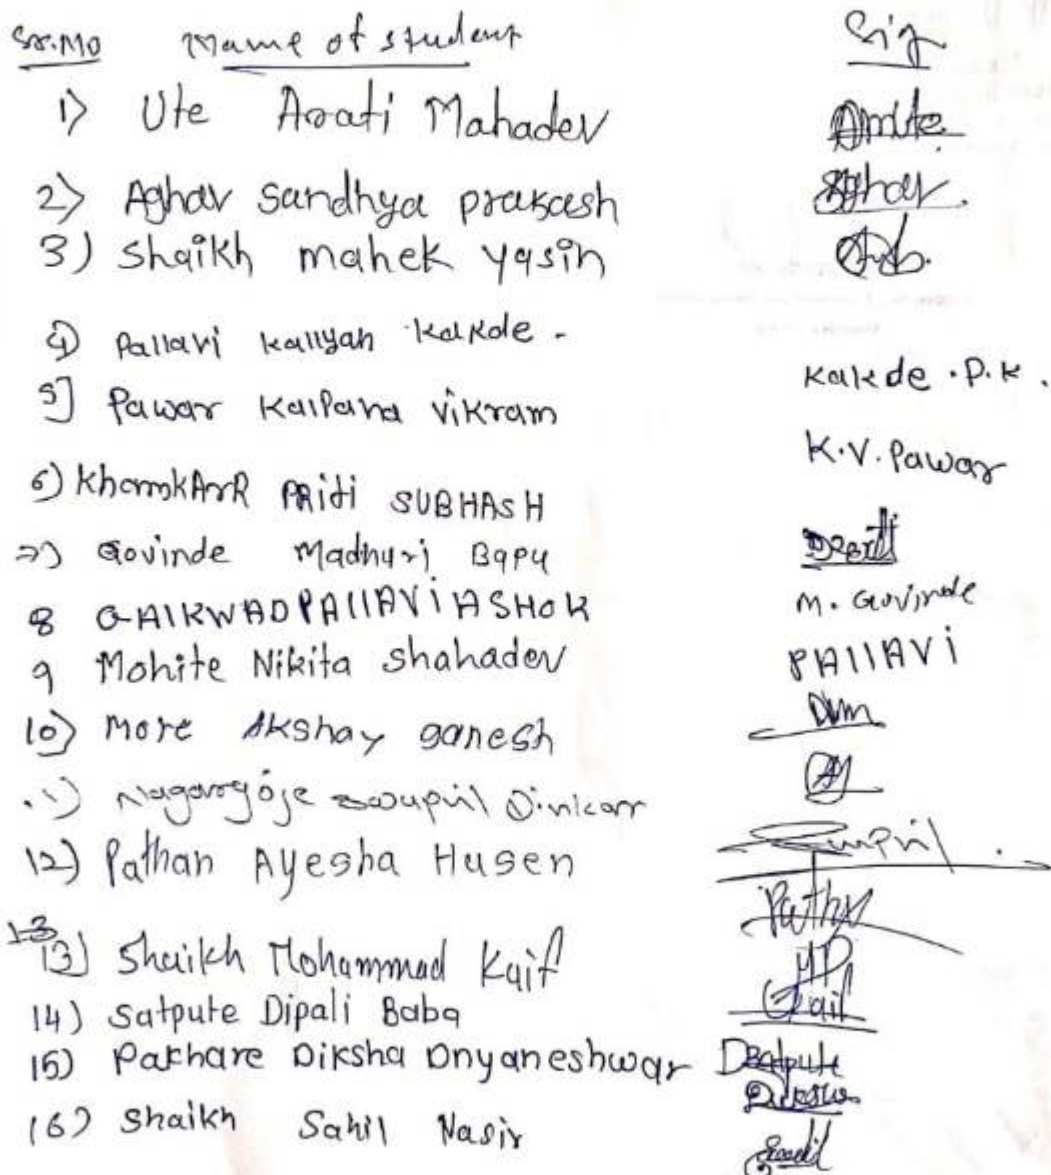 Sr.No Name of student Sig
1) Ute Arati Mahadev
2) Aghav Sandhya prakash Aghav.
3) Shaikh mahek yasin
4) Pallavi kallyan kakde -
Kakde .P.K.
5] Pawar Kalpana vikram
K.V. Pawar
6) KhamkArR PRiti SUBHASH
7) Govinde Madhuri Bapu
8 GAIKWAD PAllAVi ASHOK M. Govinde
9 Mohite Nikita Shahadev PAllAVi
10) More Akshay ganesh
11) Nagargoje Swapnil Dinkar
12) Pathan Ayesha Husen
13
13) Shaikh Mohammad Kaif
14) Satpute Dipali Baba
15) Pakhare Diksha Dnyaneshwar
16) Shaikh Sahil Nasir